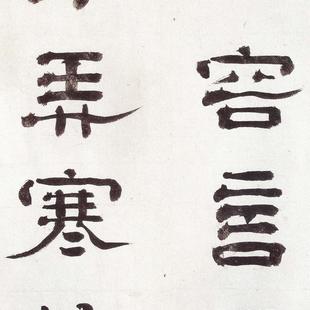 容言
弄寒